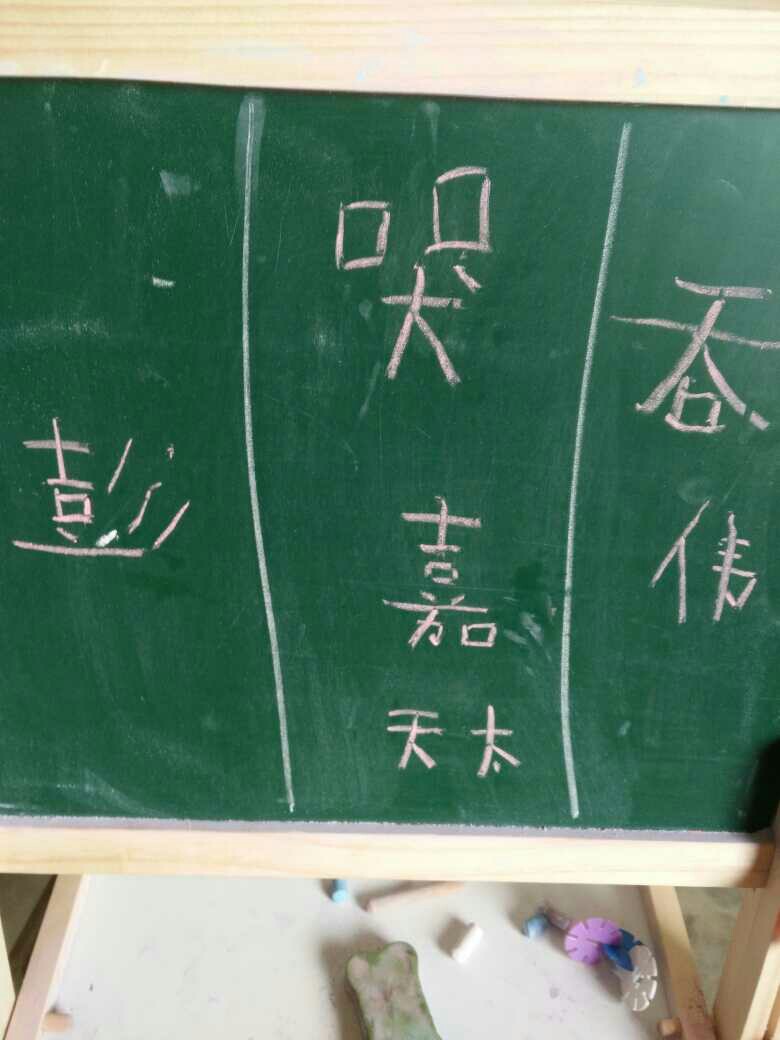 彭
哭
嘉
天太
吞
伟